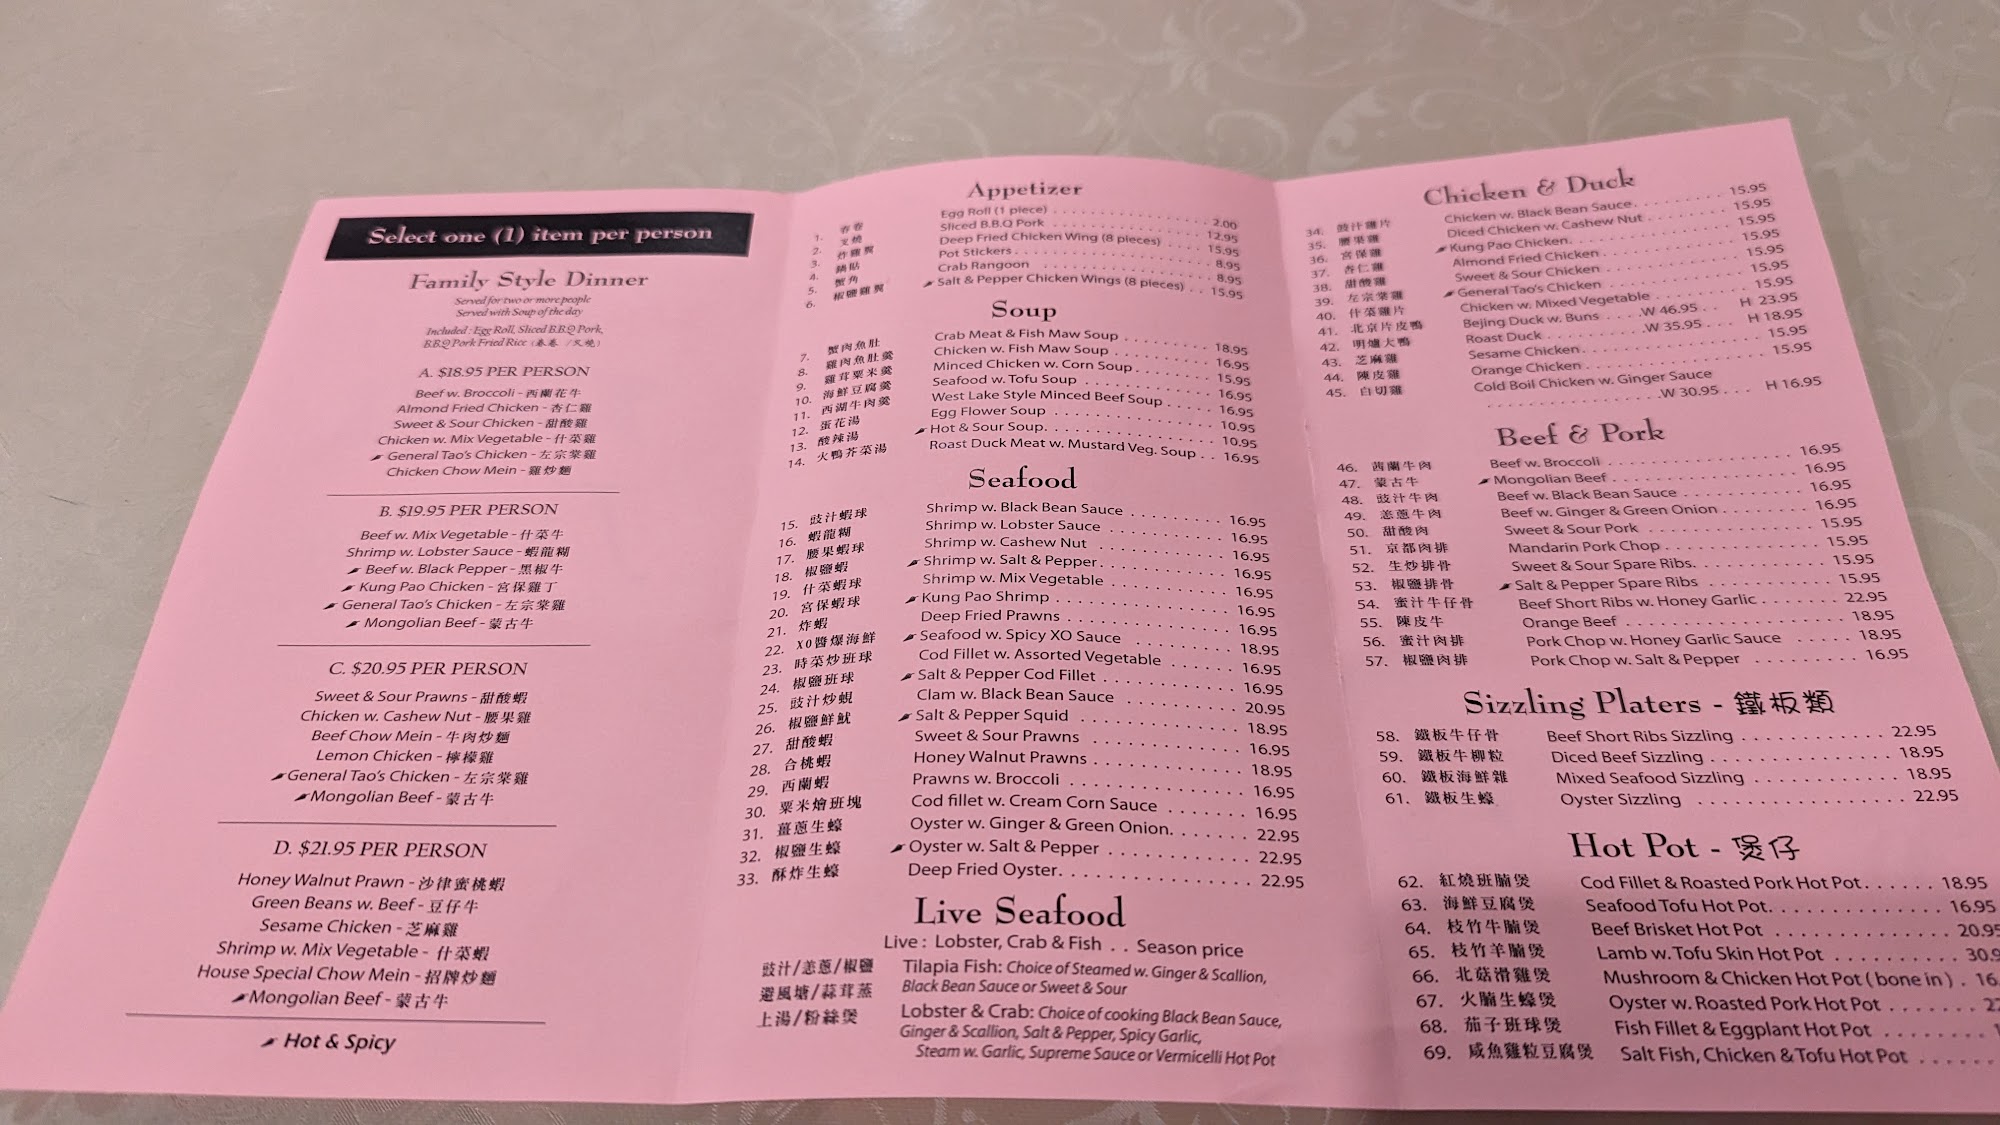 Select one (1) item per person
Family Style Dinner
Served for two or more people
Served with Soup of the day
Included : Egg Roll, Sliced B.B.Q Pork,
B.B.Q Pork Fried Rice (春卷 / 叉燒)
A. $18.95 PER PERSON
Beef w. Broccoli - 西蘭花牛
Almond Fried Chicken - 杏仁雞
Sweet & Sour Chicken - 甜酸雞
Chicken w. Mix Vegetable - 什菜雞
General Tao's Chicken - 左宗棠雞
Chicken Chow Mein - 雞炒麵
B. $19.95 PER PERSON
Beef w. Mix Vegetable - 什菜牛
Shrimp w. Lobster Sauce - 蝦龍糊
Beef w. Black Pepper - 黑椒牛
Kung Pao Chicken - 宮保雞丁
General Tao's Chicken - 左宗棠雞
Mongolian Beef - 蒙古牛
C. $20.95 PER PERSON
Sweet & Sour Prawns - 甜酸蝦
Chicken w. Cashew Nut - 腰果雞
Beef Chow Mein - 牛肉炒麵
Lemon Chicken - 檸檬雞
General Tao's Chicken - 左宗棠雞
Mongolian Beef - 蒙古牛
D. $21.95 PER PERSON
Honey Walnut Prawn - 沙律蜜桃蝦
Green Beans w. Beef - 豆仔牛
Sesame Chicken - 芝麻雞
Shrimp w. Mix Vegetable - 什菜蝦
House Special Chow Mein - 招牌炒麵
Mongolian Beef - 蒙古牛
Hot & Spicy
Appetizer
1. 春卷 Egg Roll (1 piece) 2.00
2. 叉燒 Sliced B.B.Q Pork 12.95
3. 炸雞翼 Deep Fried Chicken Wing (8 pieces) 15.95
4. 鍋貼 Pot Stickers 8.95
5. 蟹角 Crab Rangoon 8.95
6. 椒鹽雞翼 Salt & Pepper Chicken Wings (8 pieces) 15.95
Soup
7. 蟹肉魚肚 Crab Meat & Fish Maw Soup 18.95
8. 雞肉魚肚羹 Chicken w. Fish Maw Soup 16.95
9. 雞茸粟米羹 Minced Chicken w. Corn Soup 15.95
10. 海鮮豆腐羹 Seafood w. Tofu Soup 16.95
11. 西湖牛肉羹 West Lake Style Minced Beef Soup 16.95
12. 蛋花湯 Egg Flower Soup 10.95
13. 酸辣湯 Hot & Sour Soup 10.95
14. 火鴨芥菜湯 Roast Duck Meat w. Mustard Veg. Soup 16.95
Seafood
15. 豉汁蝦球 Shrimp w. Black Bean Sauce 16.95
16. 蝦龍糊 Shrimp w. Lobster Sauce 16.95
17. 腰果蝦球 Shrimp w. Cashew Nut 16.95
18. 椒鹽蝦 Shrimp w. Salt & Pepper 16.95
19. 什菜蝦球 Shrimp w. Mix Vegetable 16.95
20. 宮保蝦球 Kung Pao Shrimp 16.95
21. 炸蝦 Deep Fried Prawns 16.95
22. XO醬爆海鮮 Seafood w. Spicy XO Sauce 18.95
23. 時菜炒班球 Cod Fillet w. Assorted Vegetable 16.95
24. 椒鹽班球 Salt & Pepper Cod Fillet 16.95
25. 豉汁炒蜆 Clam w. Black Bean Sauce 20.95
26. 椒鹽鮮魷 Salt & Pepper Squid 18.95
27. 甜酸蝦 Sweet & Sour Prawns 16.95
28. 合桃蝦 Honey Walnut Prawns 18.95
29. 西蘭蝦 Prawns w. Broccoli 16.95
30. 粟米燴班塊 Cod fillet w. Cream Corn Sauce 16.95
31. 薑蔥生蠔 Oyster w. Ginger & Green Onion 22.95
32. 椒鹽生蠔 Oyster w. Salt & Pepper 22.95
33. 酥炸生蠔 Deep Fried Oyster 22.95
Live Seafood
Live : Lobster, Crab & Fish . . Season price
豉汁/恙蔥/椒鹽 Tilapia Fish: Choice of Steamed w. Ginger & Scallion,
避風塘/蒜茸蒸 Black Bean Sauce or Sweet & Sour
上湯/粉絲煲 Lobster & Crab: Choice of cooking Black Bean Sauce,
Ginger & Scallion, Salt & Pepper, Spicy Garlic,
Steam w. Garlic, Supreme Sauce or Vermicelli Hot Pot
Chicken & Duck
34. 豉汁雞片 Chicken w. Black Bean Sauce 15.95
35. 腰果雞 Diced Chicken w. Cashew Nut 15.95
36. 宮保雞 Kung Pao Chicken 15.95
37. 杏仁雞 Almond Fried Chicken 15.95
38. 甜酸雞 Sweet & Sour Chicken 15.95
39. 左宗棠雞 General Tao's Chicken 15.95
40. 什菜雞片 Chicken w. Mixed Vegetable 15.95
41. 北京片皮鴨 Bejing Duck w. Buns W 46.95 H 23.95
42. 明爐大鴨 Roast Duck W 35.95 H 18.95
43. 芝麻雞 Sesame Chicken 15.95
44. 陳皮雞 Orange Chicken 15.95
45. 白切雞 Cold Boil Chicken w. Ginger Sauce
W 30.95 H 16.95
Beef & Pork
46. 茜蘭牛肉 Beef w. Broccoli 16.95
47. 蒙古牛 Mongolian Beef 16.95
48. 豉汁牛肉 Beef w. Black Bean Sauce 16.95
49. 恙蔥牛肉 Beef w. Ginger & Green Onion 16.95
50. 甜酸肉 Sweet & Sour Pork 15.95
51. 京都肉排 Mandarin Pork Chop 15.95
52. 生炒排骨 Sweet & Sour Spare Ribs 15.95
53. 椒鹽排骨 Salt & Pepper Spare Ribs 15.95
54. 蜜汁牛仔骨 Beef Short Ribs w. Honey Garlic 22.95
55. 陳皮牛 Orange Beef 18.95
56. 蜜汁肉排 Pork Chop w. Honey Garlic Sauce 18.95
57. 椒鹽肉排 Pork Chop w. Salt & Pepper 16.95
Sizzling Platers - 鐵板類
58. 鐵板牛仔骨 Beef Short Ribs Sizzling 22.95
59. 鐵板牛柳粒 Diced Beef Sizzling 18.95
60. 鐵板海鮮雜 Mixed Seafood Sizzling 18.95
61. 鐵板生蠔 Oyster Sizzling 22.95
Hot Pot - 煲仔
62. 紅燒班腩煲 Cod Fillet & Roasted Pork Hot Pot 18.95
63. 海鮮豆腐煲 Seafood Tofu Hot Pot 16.95
64. 枝竹牛腩煲 Beef Brisket Hot Pot 20.95
65. 枝竹羊腩煲 Lamb w. Tofu Skin Hot Pot 30.9
66. 北菇滑雞煲 Mushroom & Chicken Hot Pot ( bone in ) 16.
67. 火腩生蠔煲 Oyster w. Roasted Pork Hot Pot 22
68. 茄子班球煲 Fish Fillet & Eggplant Hot Pot 1
69. 咸魚雞粒豆腐煲 Salt Fish, Chicken & Tofu Hot Pot